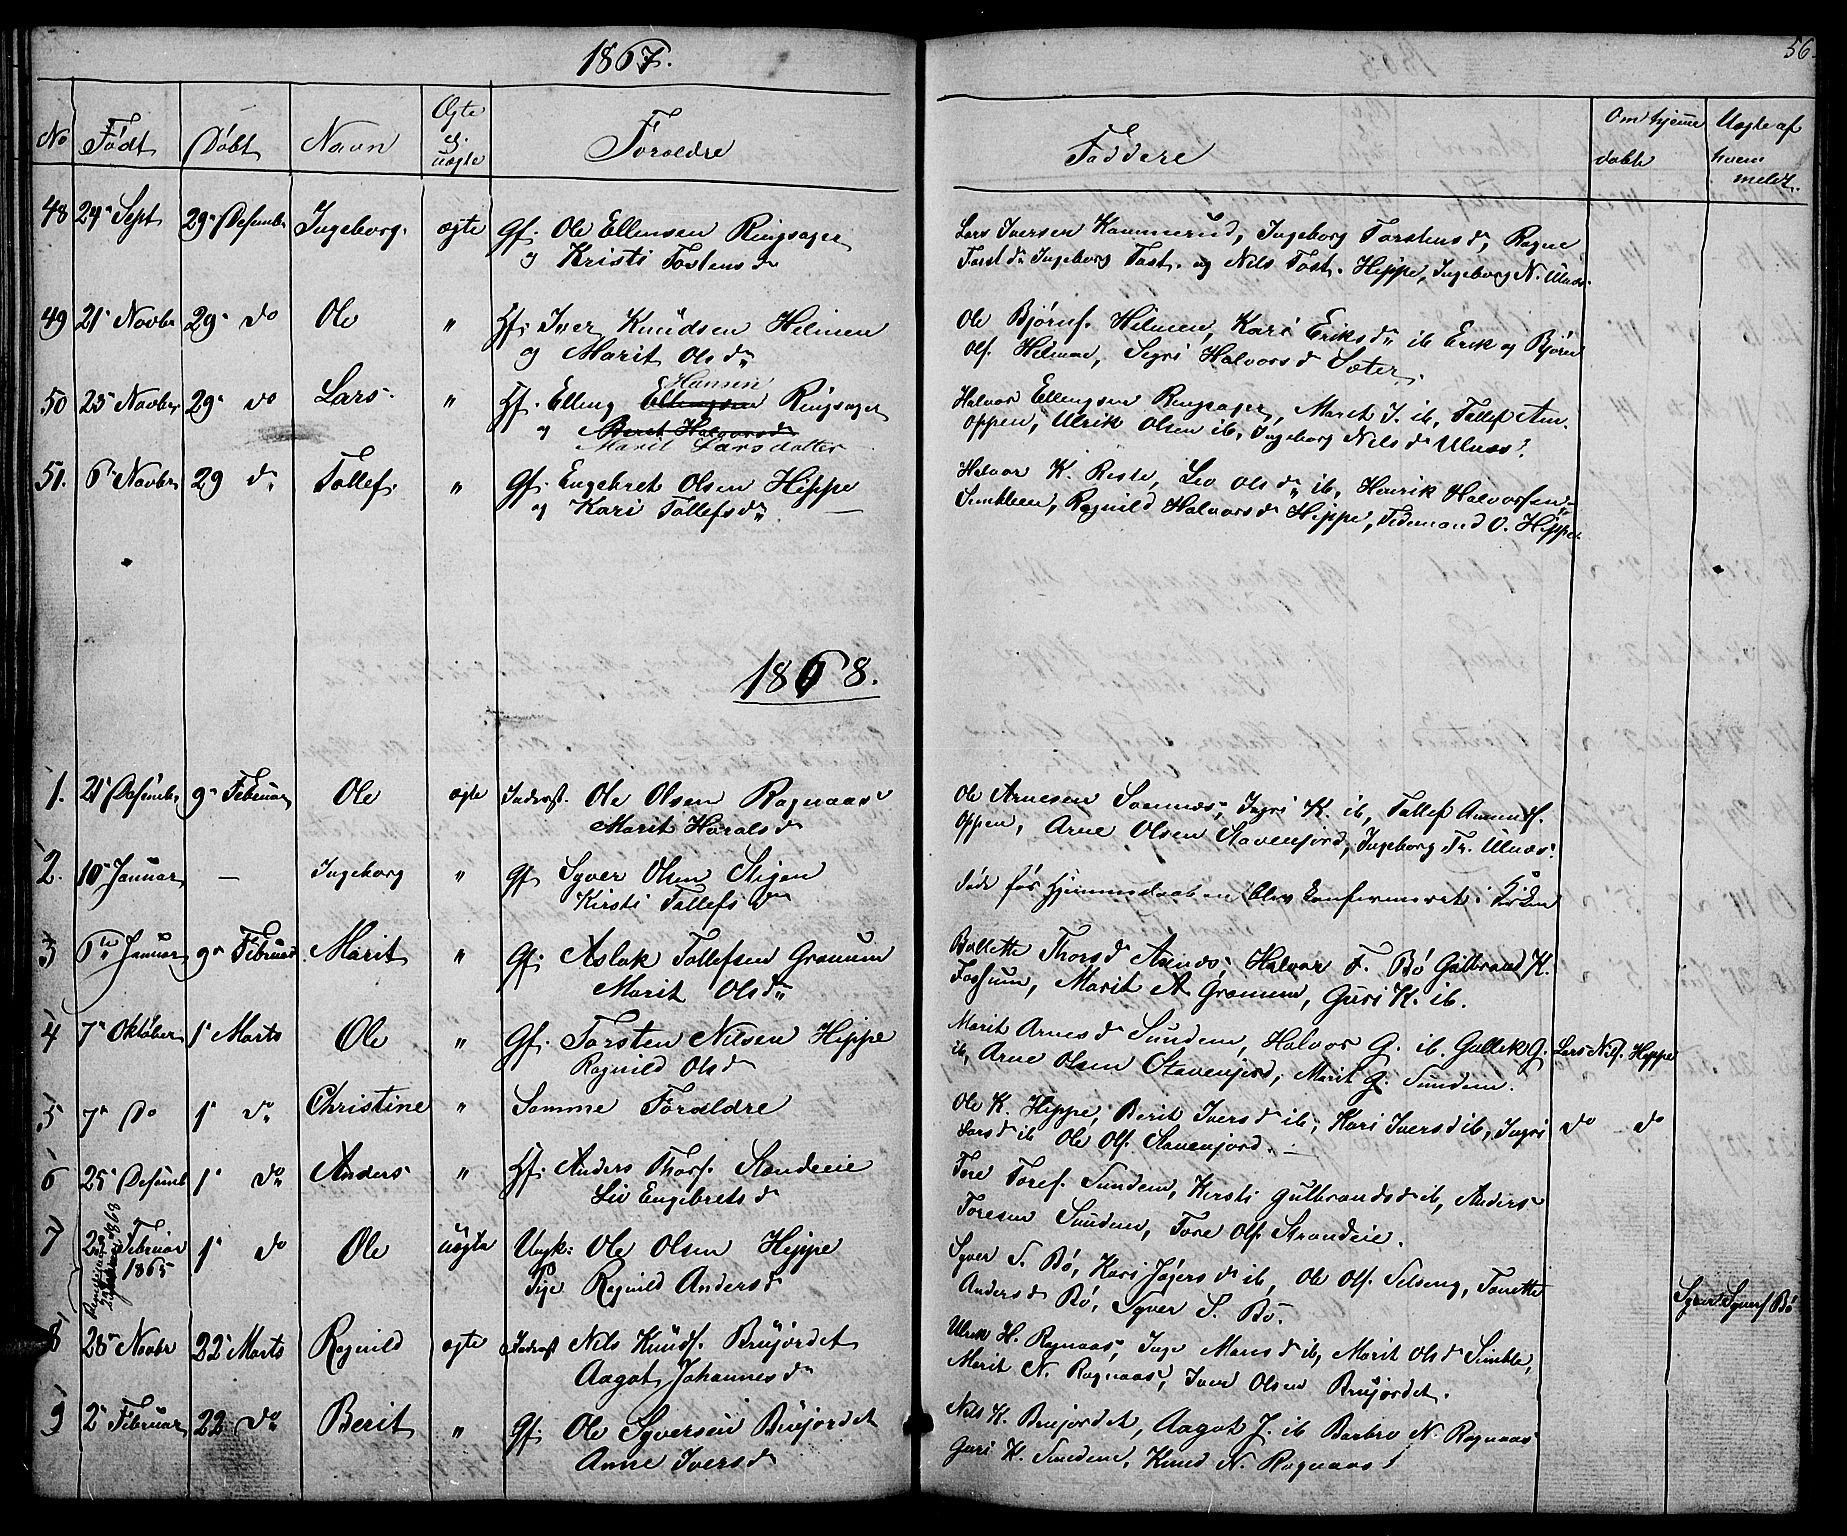 1867.
56.
No Født Døbt Navn Ægte el. uægte Foreldre Faddere Om hjemme døbte Uægte af hvem meldt.
48 24 Sept 29 Desember Ingeborg ægte Gf. Ole Ellensen Ringsager
og Kristi Tostensd
Lars Iversen Kammerud, Ingeborg Torstensd, Ragne
Torst d Ingeborg Tost. og Nils Tost. Hippe, Ingeborg N. Ulnæs
49 21 Novbr 29 do Ole " Hf. Iver Knudsen Hilmen
og Marit Olsd
Ole Bjørns. Hilmen, Kari Eriksd ib Erik og Bjørn
Ols. Hilmen, Segri Halvorsd Sæter
50 23 Novber 29 do Lars " Hf. Elling Ellingsen Hansen Ringsager
og Berit Halvorsd
Marit Larsdatter
Halvor Ellingsen Ringsager, Marit I. ib, Tollef Am.
oppen, Ulrik Olsen ib, Ingeborg Nils d Ulnæs
51. 6 Novbr 29 d Tollef " Gf. Engebret Olsen Hippe
og Kari Tollefsd
Halvor K. Reste, Liv Olsd ib, Henrik Halvorsen
Simbleen, Ragnild Halvorsd Hippe, Tidemand O. Hippe
1868.
1. 21 Desember 9 Februar Ole ægte Inderst. Ole Olsen Ragnaas
Marit Haralsd
Ole Arnesen Sonnæs, Ingri K. ib, Tollef Amunds.
oppen, Arne Olsen Stavenjord, Ingeborg Tr. Ulnæs
2. 10 Januar — Ingeborg " Gf. Syver Olsen Stigen
Kirsti Tollefsd
Døde før Hjemmedaaben blev konfirmeret i Kirken
3 6te Januar 9 Februar Marit " Gf. Aslak Tollefsen Granum
Marit Olsd
Bollette Thorsd Aanæs, Halvor T. Bø Gulbrand K.
Fossum, Marit A Granum, Guri K. ib.
4 7 Oktober 1 Marts Ole " Gf. Torsten Nilsen Hippe
Ragnild Olsd
Marit Arnesd Sundem, Halvor G. ib. Gullik G. Lars Nils. Hippe
ib, Arne Olsen Stavenjord, Marit G. Sundem.
5 7 Do 1 do Christine " Samme Foraldre
Ole K. Hippe, Berit Iversd ib, Kari Iversd ib, Ingri do do
Larsd ib Ole Ols. Stavenjord.
6 25 Desemb 1 do Anders " Hf. Anders Thors. Strandeie
Liv Engebretsd
Tore Tores. Sundem, Kirsti Gulbrandsd ib, Anders
Toresen Sundem, Tore Ols. Strandeie.
7 Februar 1865 1 do Ole uægte Ungk: Ole Olsen Hippe
Pige Ragnild Andersd
Syver S. Bø, Kari Jøgersd ib, Ole Ols. Selseng, Tonette
Andersd Bø, Syver S. Bø.
Syvert Syvers Bø
8 28 Novbr 22 Marts Ragnild ægte Inderst Nils Knuds. Brujordet
Aagot Johannesd
Ulrik H. Ragnaas, Inge Mons d ib, Marit Olsd Simble,
Marit N. Ragnaas, Iver Olsen Brujordet.
9 2 Februar 22 do Berit " Gf. Ole Syversen Brujordet
Anne Iversd
Nils K. Brujordet, Aagot J. ib Barbro N. Ragnaas
Guri K. Sundem, Knud N. Ragnaas